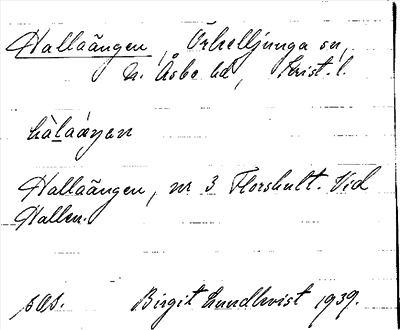 Hallaängen, Örkelljunga sn,
N. Åsbo hd, Krist. l.
hàlaáŋen
Hallaängen, nr 3 Florshult. Vid
Hallen.
pas. Birgit Lundkvist 1939.